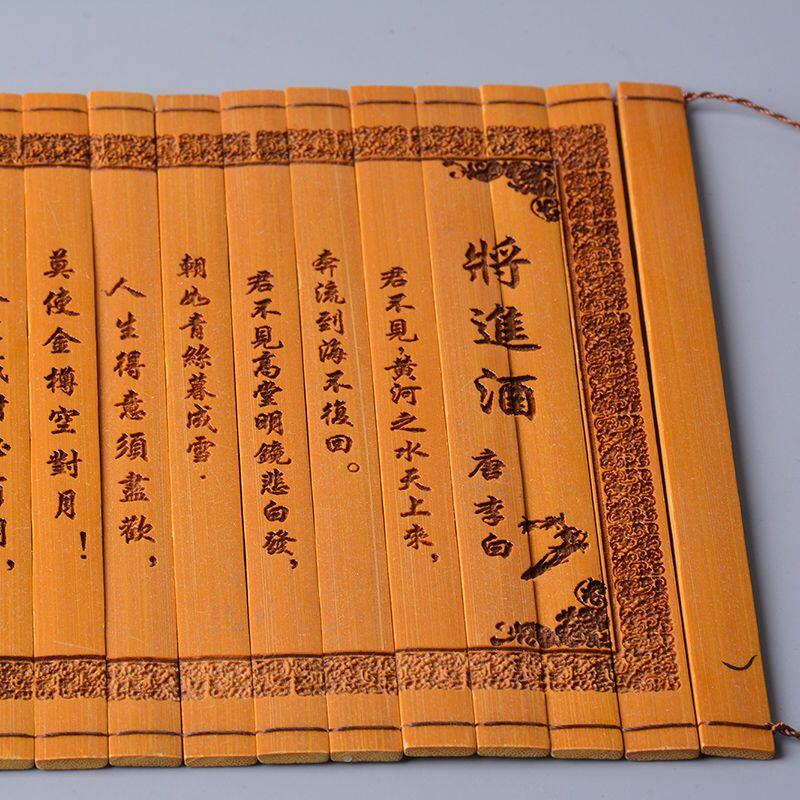 將進酒
唐 李白
君不見，黃河之水天上來，
奔流到海不復回。
君不見高堂明鏡悲白發，
朝如青絲暮成雪．
人生得意須盡歡，
莫使金樽空對月！